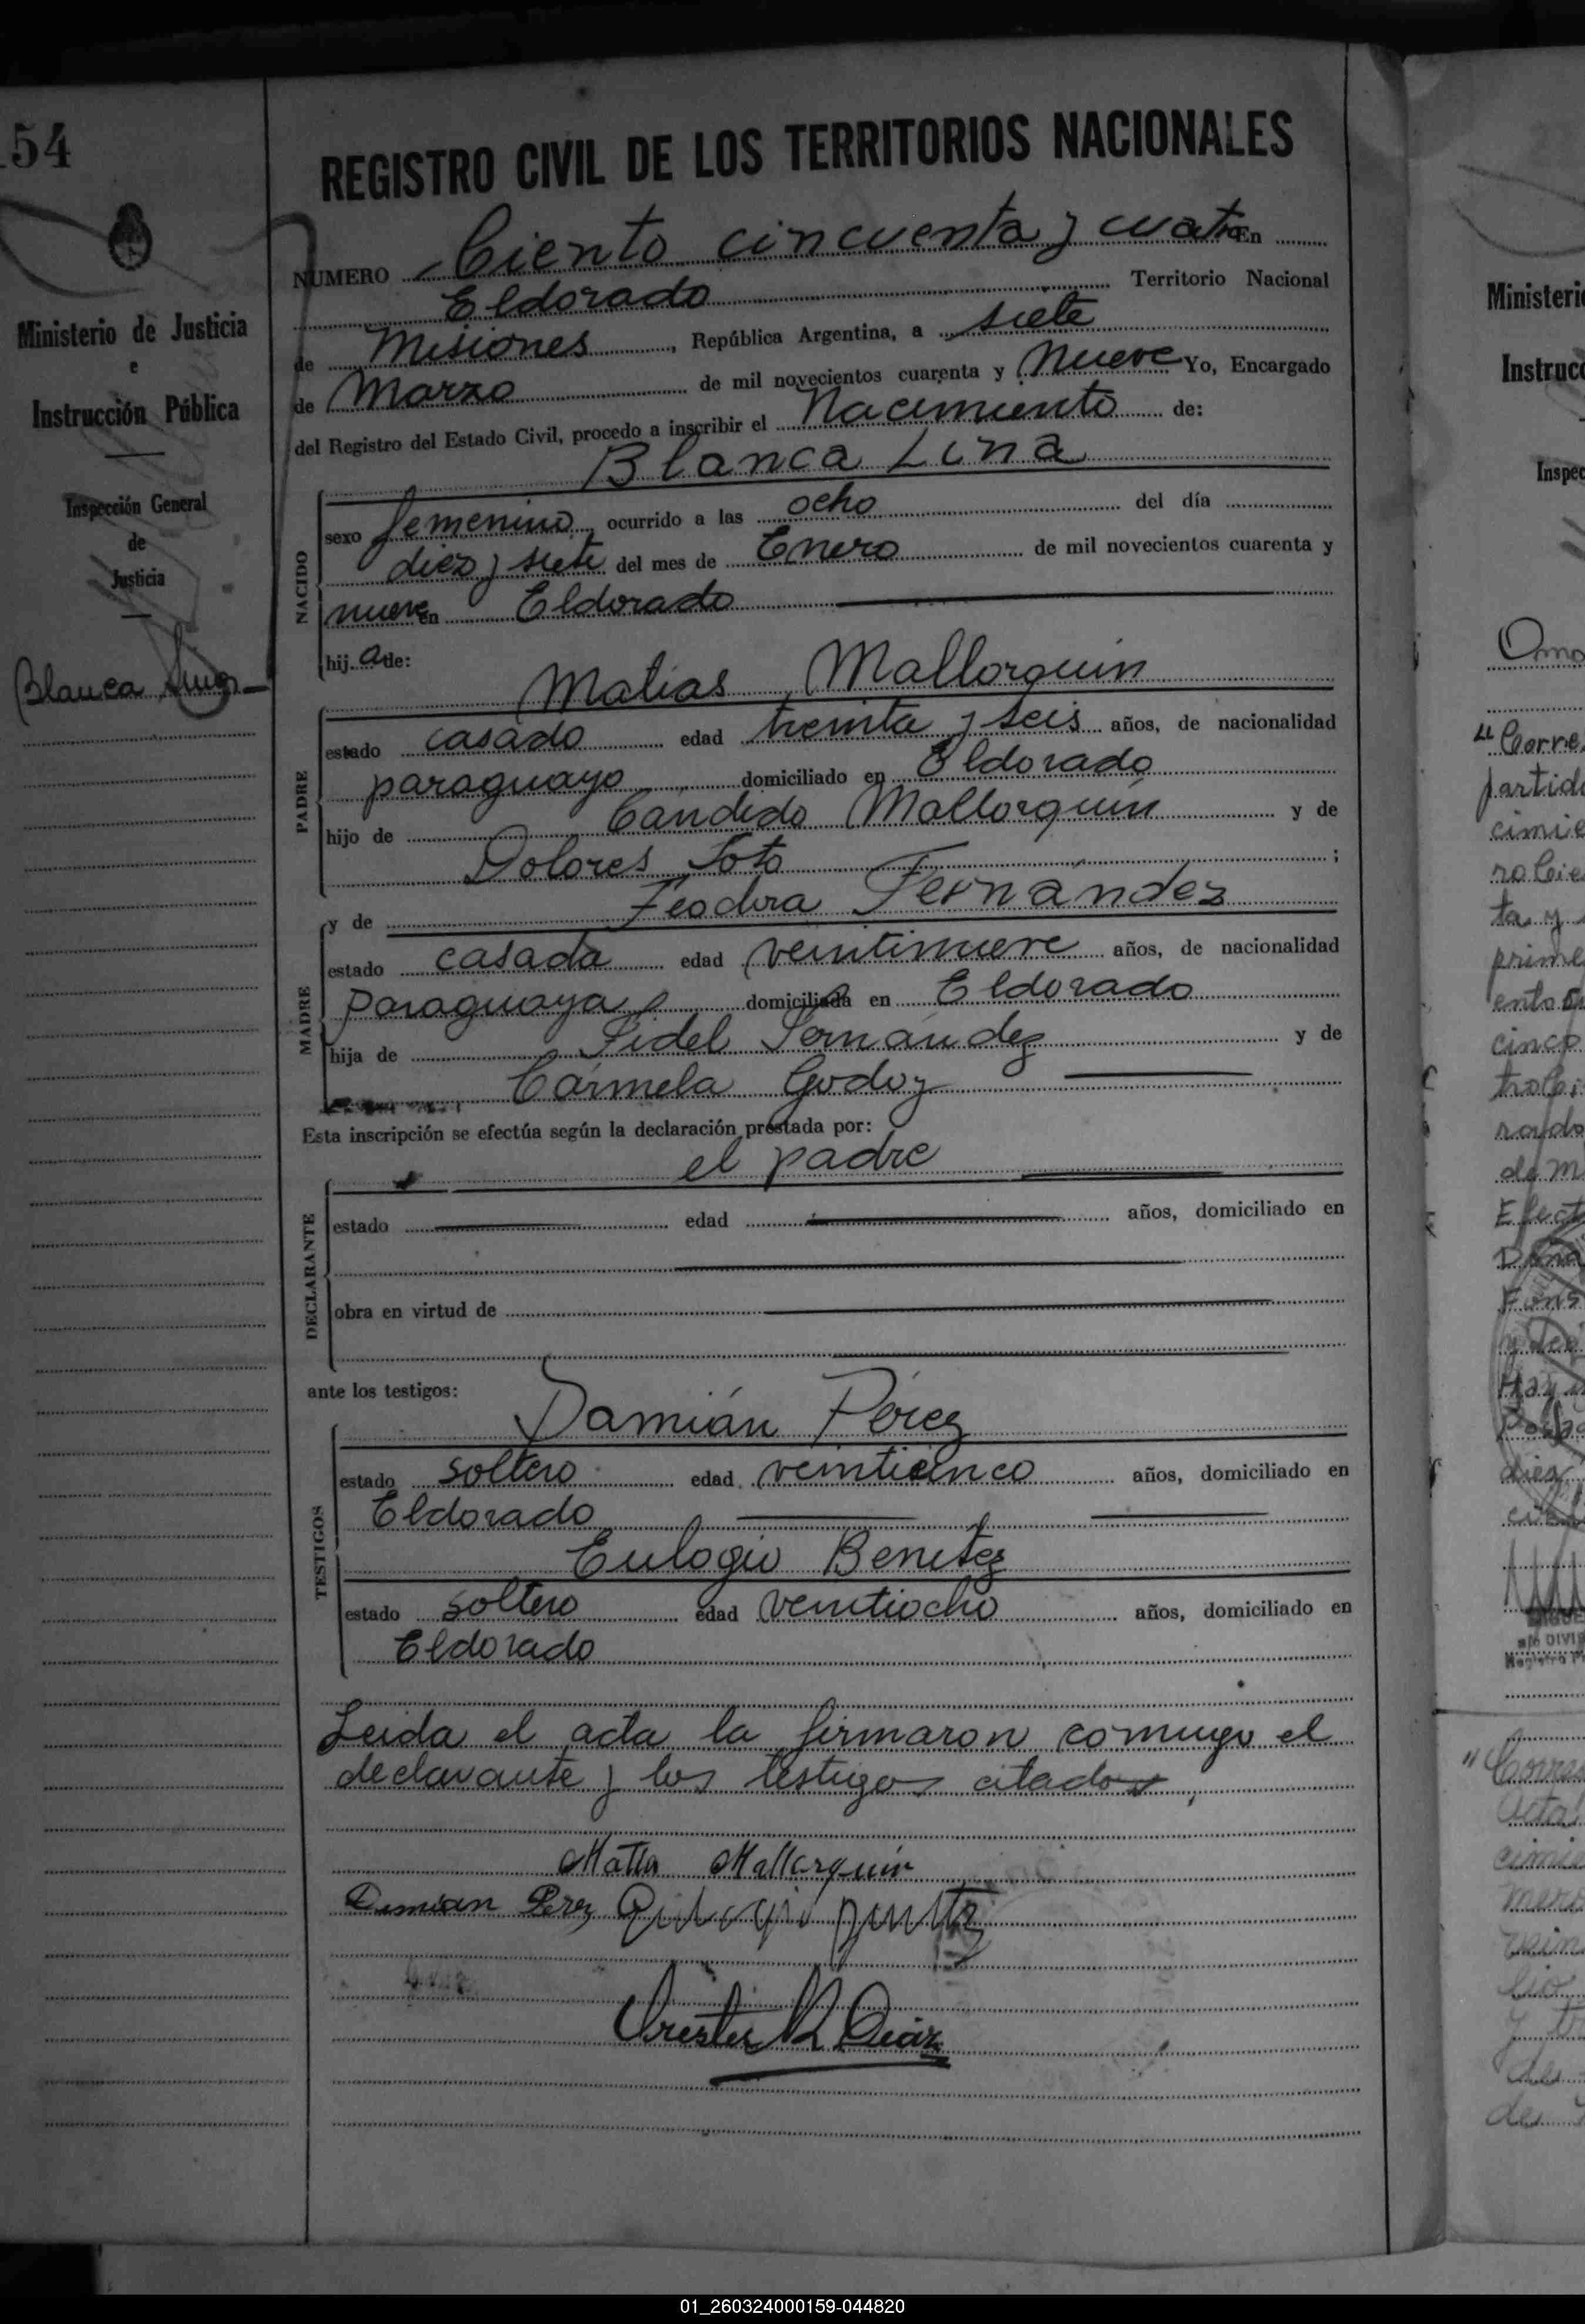 154
Ministerio de Justicia
e
Instrucción Pública
Inspección General
de
Justicia
Blanca
REGISTRO CIVIL DE LOS TERRITORIOS NACIONALES
NUMERO Ciento cincuenta y cuatro En
Eldorado Territorio Nacional
de Misiones, República Argentina, a siete
de Marzo de mil novecientos cuarenta y Nueve Yo, Encargado
del Registro del Estado Civil, procedo a inscribir el Nacimiento de:
Blanca Lina
NACIDO
sexo femenino, ocurrido a las ocho del día
diez y siete del mes de Enero de mil novecientos cuarenta y
nueve en Eldorado
hij a de:
Matias Mallorquin
PADRE
estado casado edad treinta y seis años, de nacionalidad
paraguayo domiciliado en Eldorado
hijo de Cándido Mallorquín y de
Dolores Soto ;
y de Teodora Fernández
MADRE
estado casada edad veintinueve años, de nacionalidad
paraguaya domiciliada en Eldorado
hija de Fidel Fernández y de
Cármela Godoy
Esta inscripción se efectúa según la declaración prestada por:
el padre
DECLARANTE
estado edad años, domiciliado en
obra en virtud de
ante los testigos:
Damián Pérez
TESTIGOS
estado soltero edad veinticinco años, domiciliado en
Eldorado
Eulogio Benítez
estado soltero edad veintiocho años, domiciliado en
Eldorado
Leida el acta la firmaron comigo el
declarante y los testigos citados,
Mallorquin
Damian Perez
Orestes R Diaz
Ministerio
Instrucc
Inspec
"Corre
partid
cimie
ta y
prime
cinco
de M
Efect
diez
"Corres
acta
cimie
de
01_260324000159-044820